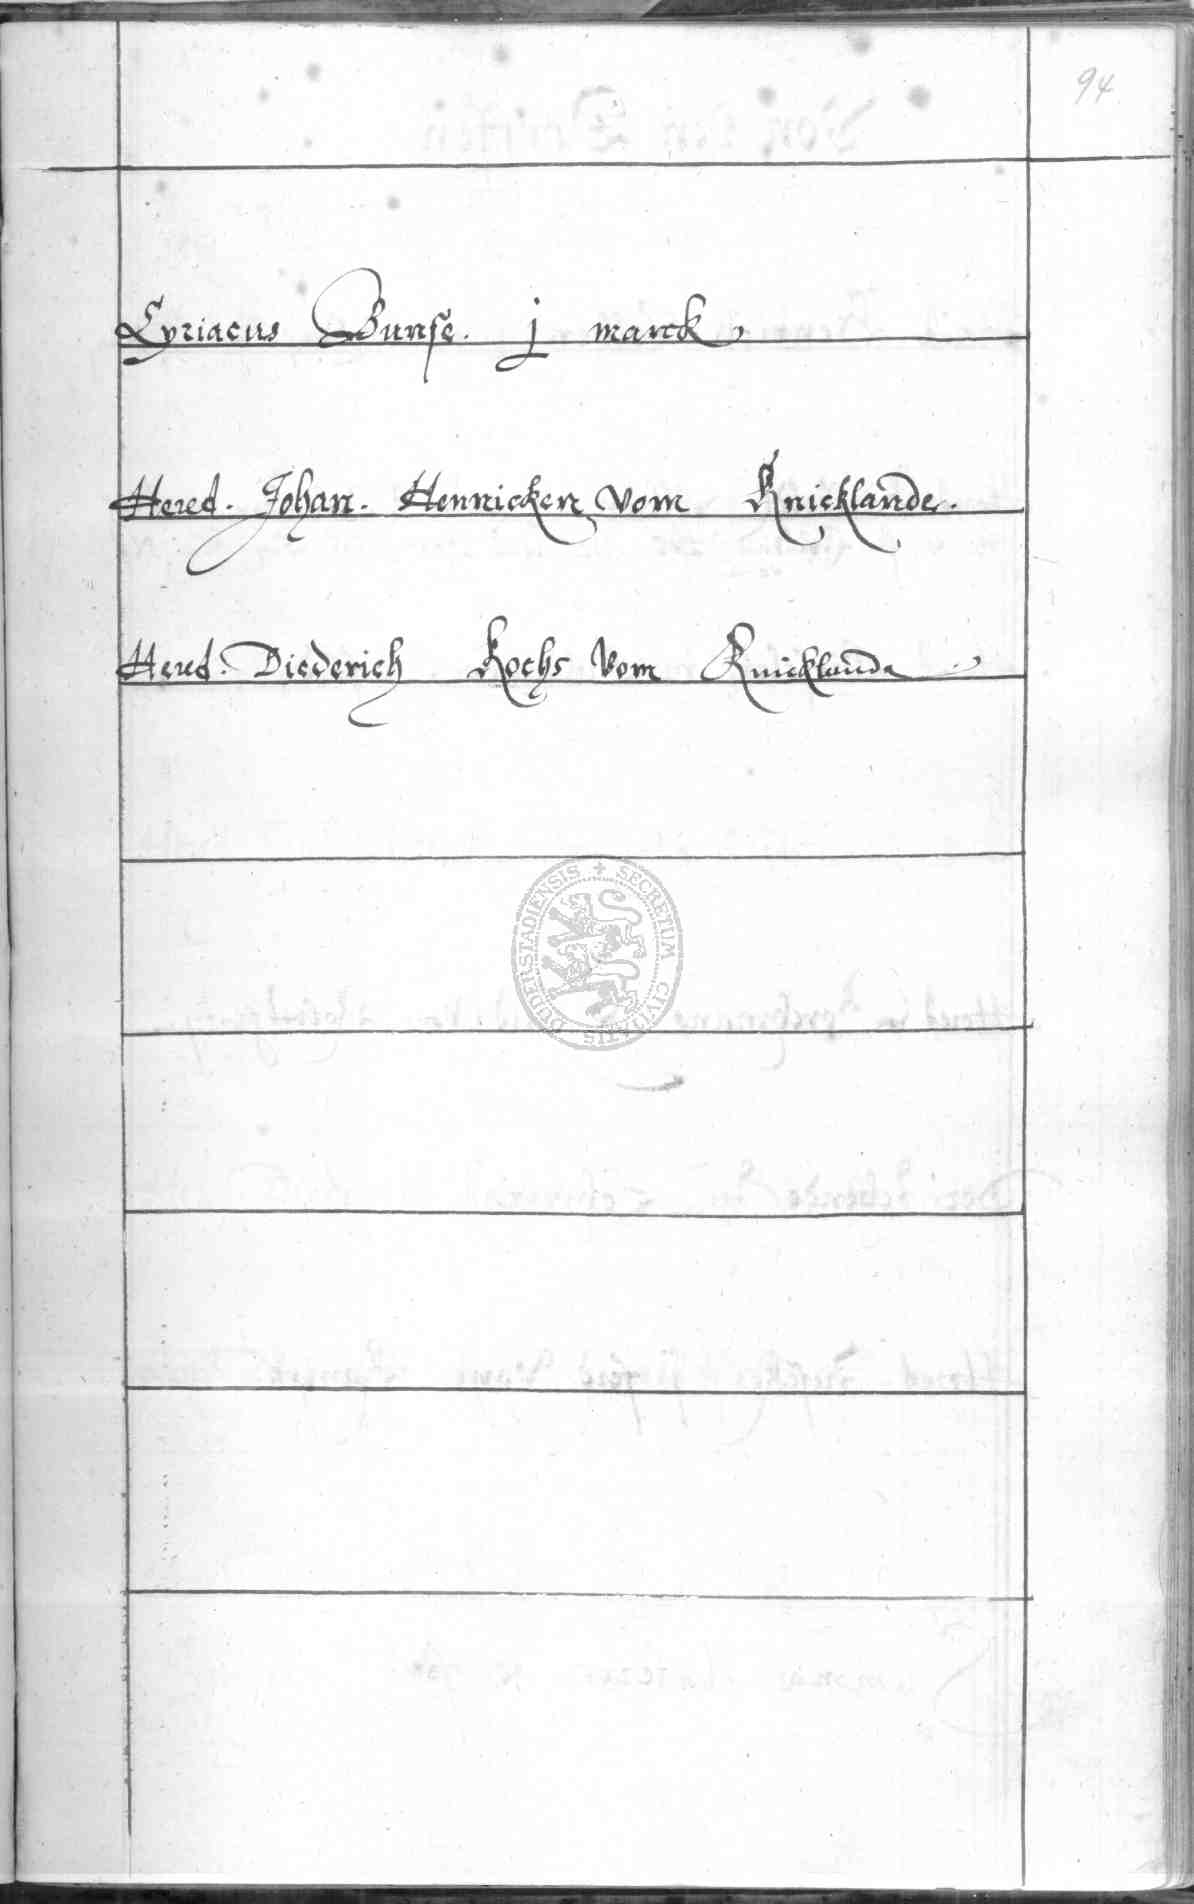 94
Cyriacus Bunse. j marck
Hered. Johan. Hennicken vom Knicklande.
Hered. Diederich Kochs vom Knicklande
SECRETUM CIVITATIS DUDERSTADIENSIS